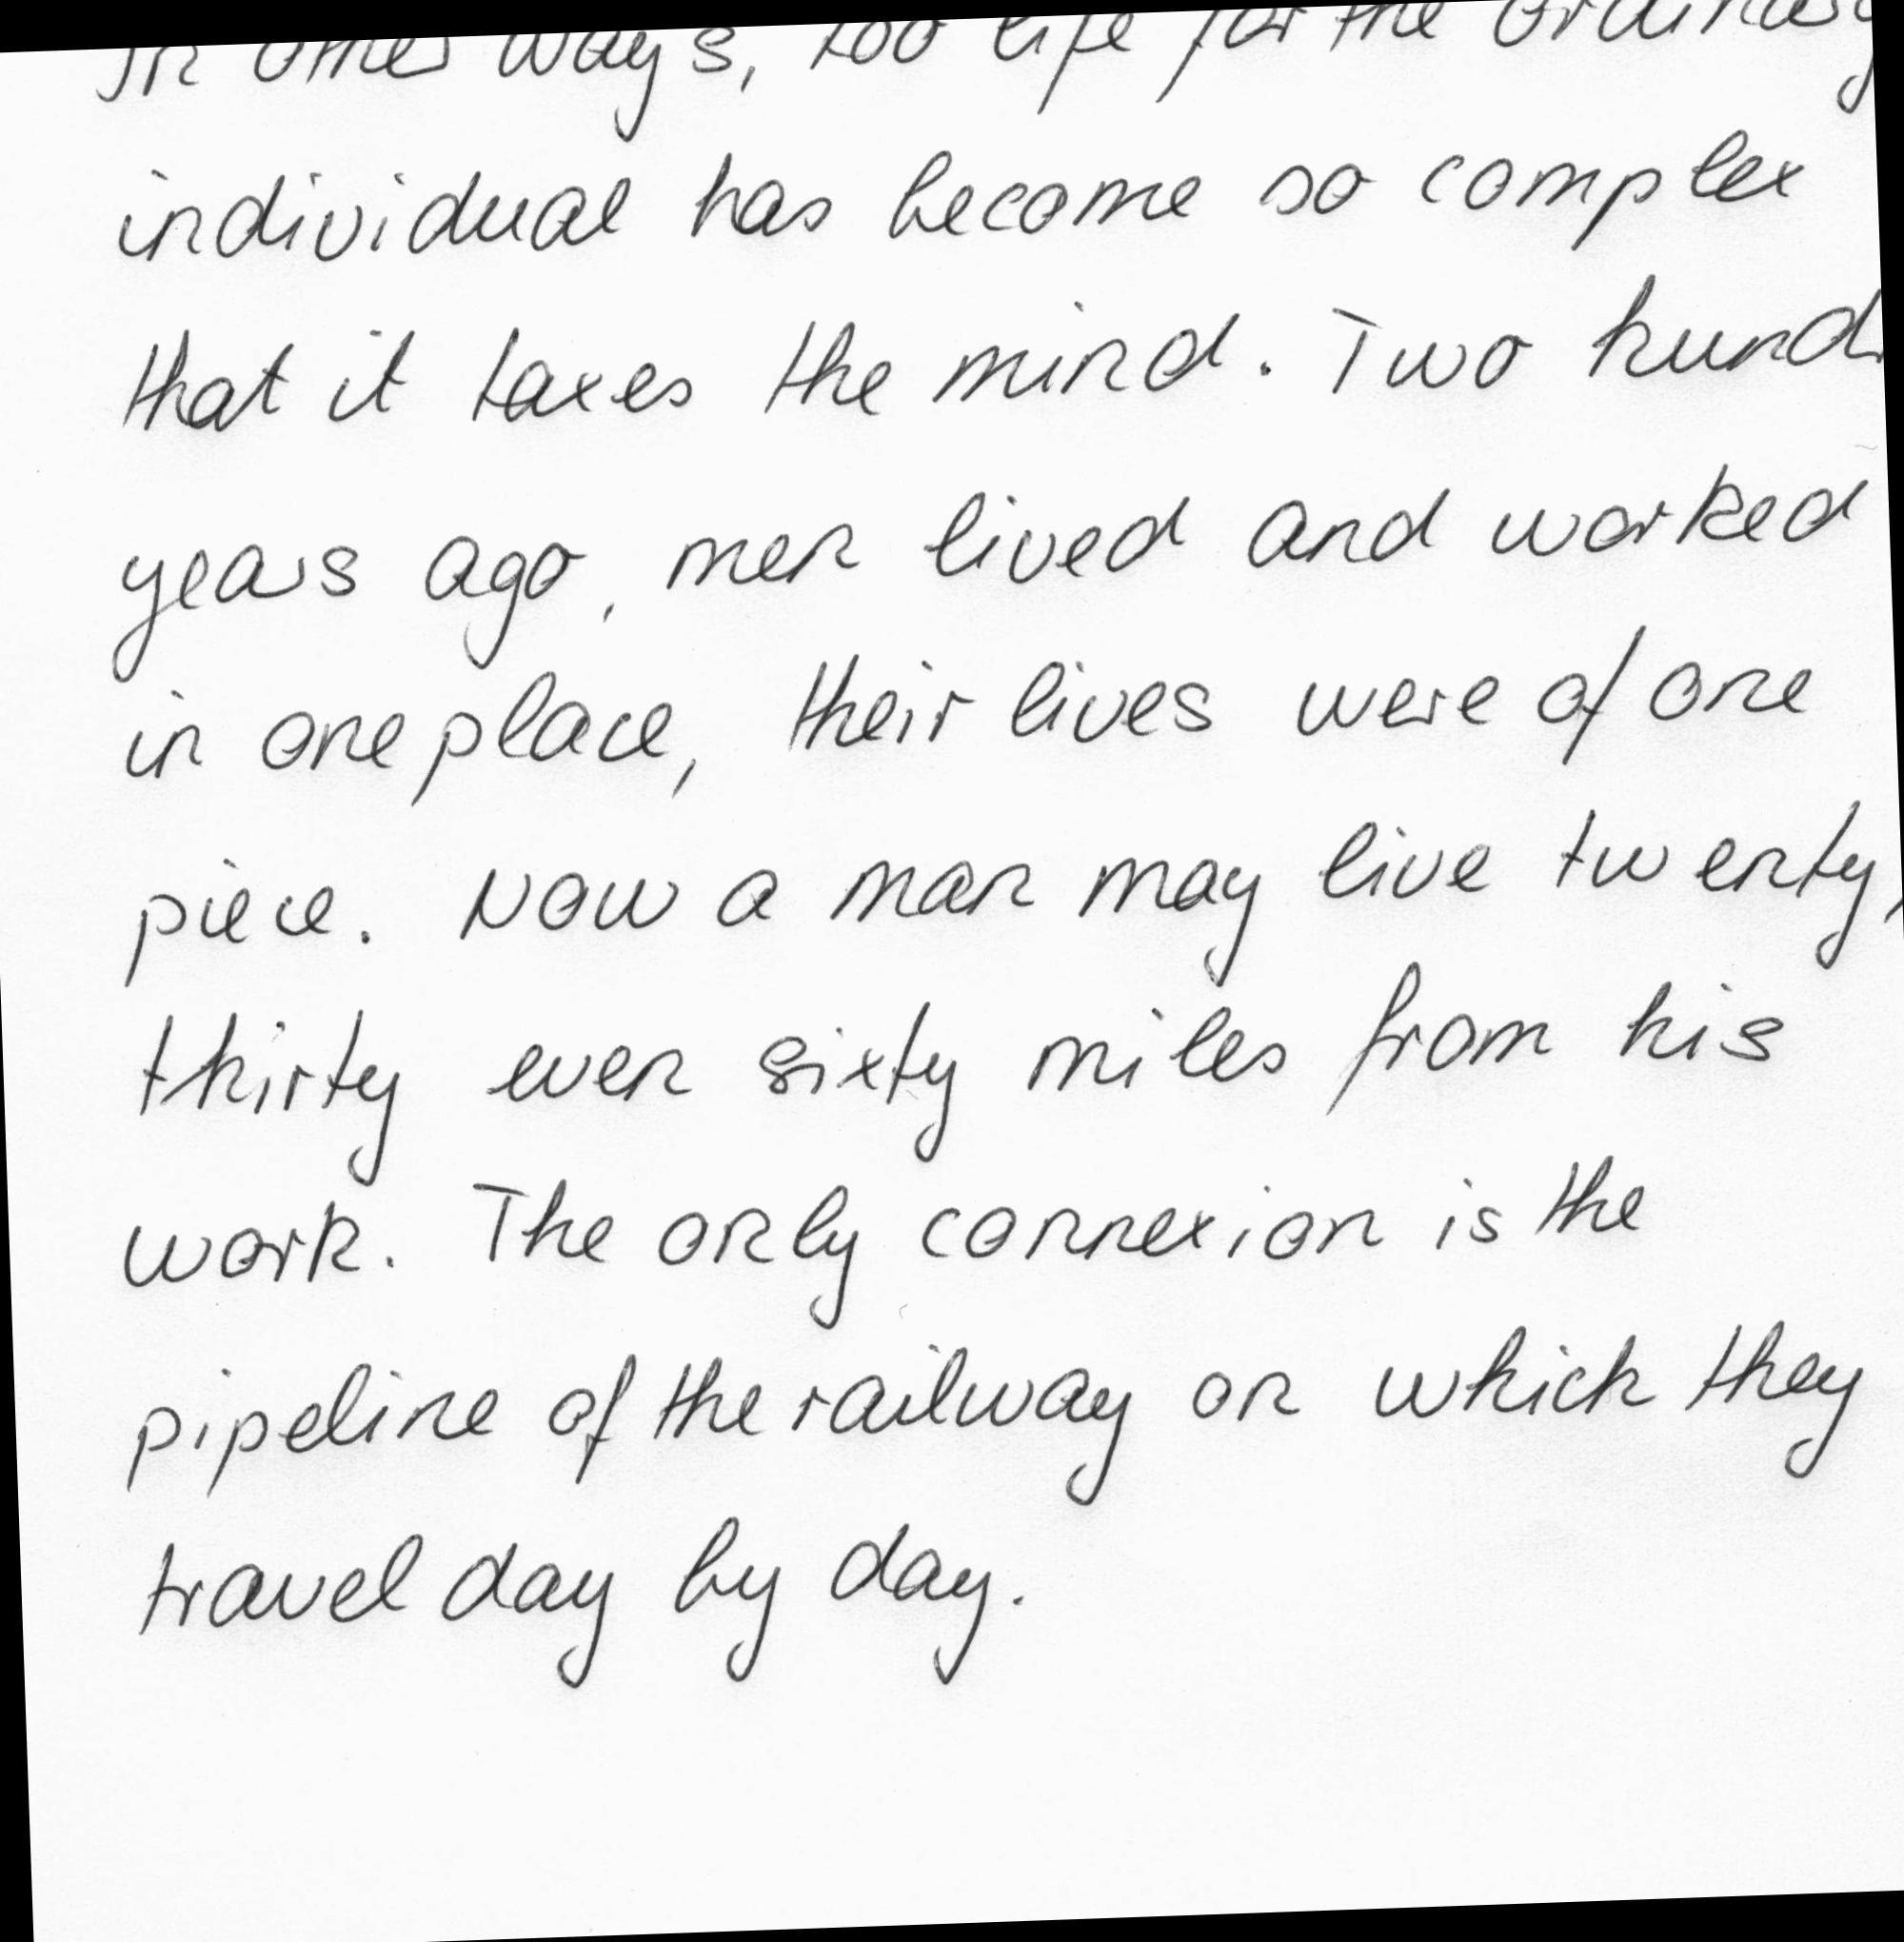 In other ways, too life for the ordinary
individual has become so complex
that it taxes the mind. Two
years ago, men lived and worked
in one place, their lives were of one
piece. Now a man may live twenty,
thirty even sixty miles from his
work. The only connexion is the
pipeline of the railway on which they
travel day by day.